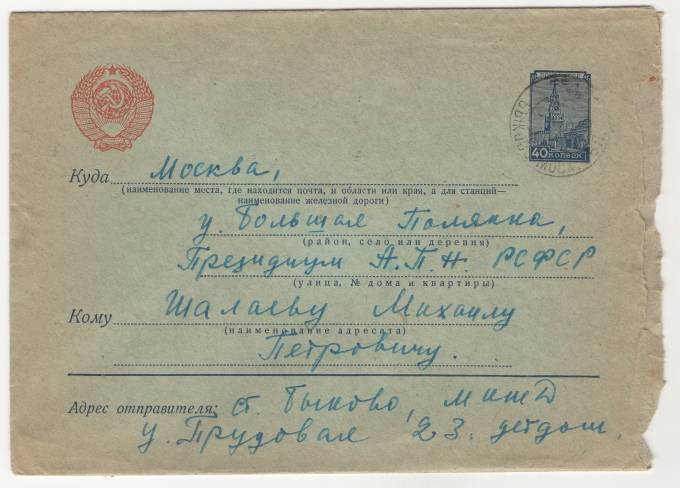 40 КОПЕЕК
Куда Москва,
(наименование места, где находится почта, и области или края, а для станций—
наименование железной дороги)
у. Большая Полянка,
(район, село или деревня)
Президиум А.П.Н. РСФСР
(улица, № дома и квартиры)
Кому Шалаеву Михаилу
(наименование адресата)
Петровичу.
Адрес отправителя: ст. Быково,
у. Трудовая 23. детдом.